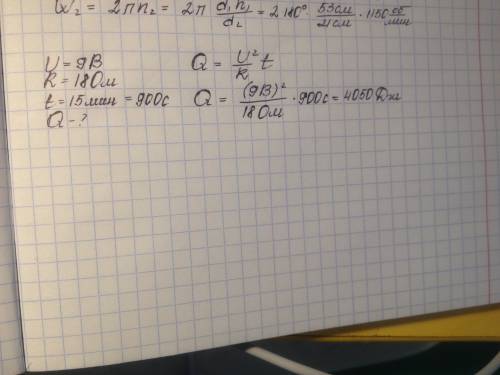 W₂ = 2πn₂ = 2π d₁n₁/d₂ = 2·180° 53см/21см · 1150 об/мин
U = 9В
R = 18Ом
t = 15мин = 900с
Q - ?
Q = U²/R t
Q = (9В)²/18Ом · 900с = 4050Дж